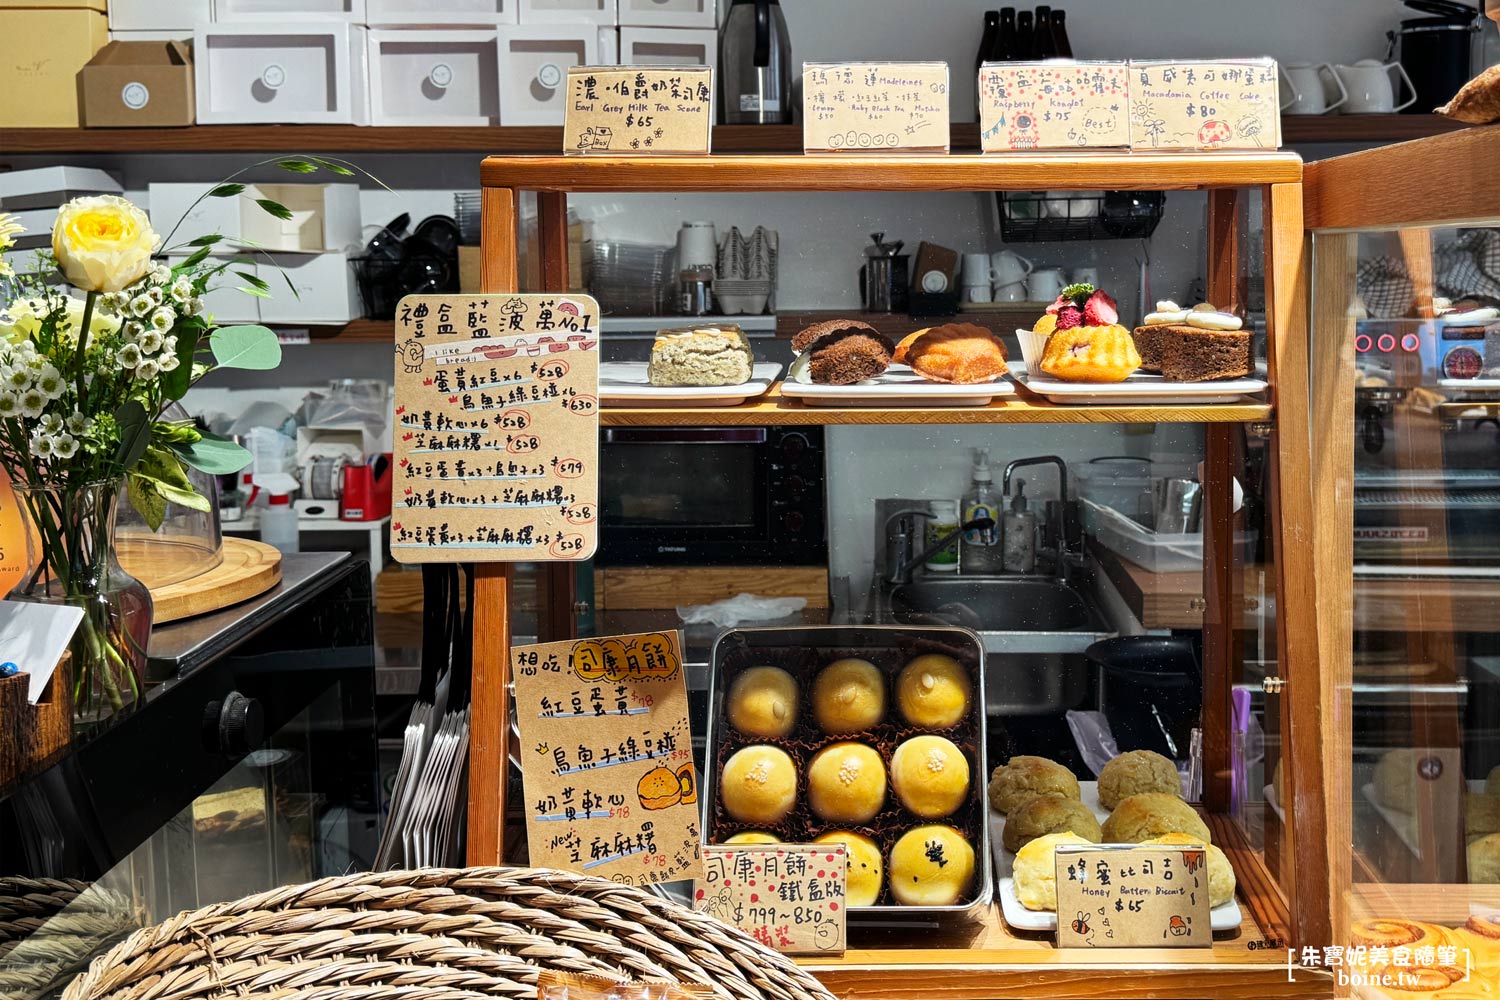 濃·伯爵奶茶司康
Earl Grey Milk Tea Scone
$65
瑪德蓮 Madeleines
·檸檬 ·紅玉紅茶 ·抹茶
Lemon Ruby Black Tea Matcha
$50 $60 $70
覆盆莓咕咕霍夫
Raspberry Kouglof
$75
Best
夏威夷可娜蛋糕
Macadamia Coffee Cake
$80
禮盒藍波萬No1
I like
bread:)
蛋黃紅豆x6 $528
烏魚子綠豆椪x6
$630
奶黃軟心x6 $528
芝麻麻糬x1 $528
紅豆蛋黃x3+烏魚子x3 $579
奶黃軟心x3+芝麻麻糬x3
$528
紅豆蛋黃x3+芝麻麻糬x3 $528
想吃!司康月餅
紅豆蛋黃 $78
烏魚子綠豆椪 $95
奶黃軟心 $78
New
芝麻麻糬 $78
司康月餅
鐵盒版
$799~850
精裝
蜂蜜比司吉
Honey Butter Biscuit
$65
TATUNG
朱寶妮美食隨筆
boine.tw